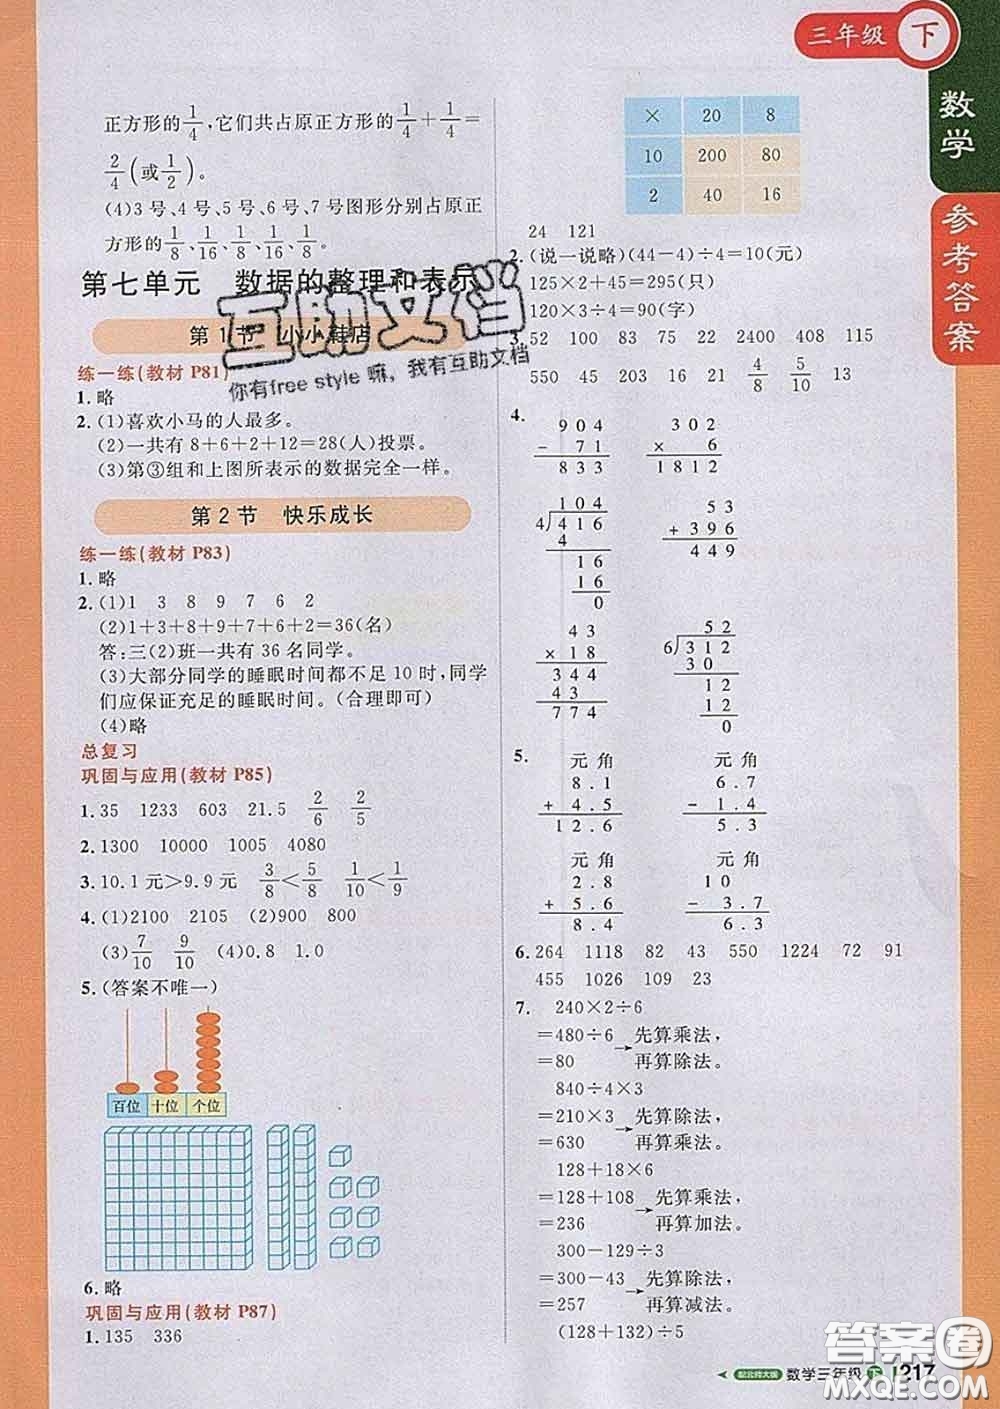 三年级 下
数学
参考答案
正方形的1/4,它们共占原正方形的1/4+1/4=
2/4(或1/2)。
(4)3号、4号、5号、6号、7号图形分别占原正
方形的1/8、1/16、1/8、1/16、1/8。
第七单元 数据的整理和表示
第1节 小小鞋店
练一练(教材 P81)
1.略
2.(1)喜欢小马的人最多。
(2)一共有 8+6+2+12=28(人)投票。
(3)第③组和上图所表示的数据完全一样。
第2节 快乐成长
练一练(教材 P83)
1.略
2.(1)1 3 8 9 7 6 2
(2)1+3+8+9+7+6+2=36(名)
答:三(2)班一共有 36 名同学。
(3)大部分同学的睡眠时间都不足 10 时,同学
们应保证充足的睡眠时间。(合理即可)
(4)略
总复习
巩固与应用(教材 P85)
1.35 1233 603 21.5 2/6 2/5
2.1300 10000 1005 4080
3.10.1元>9.9元 3/8<5/8 1/10<1/9
4.(1)2100 2105 (2)900 800
(3)7/10 9/10 (4)0.8 1.0
5.(答案不唯一)
百位 十位 个位
6.略
巩固与应用(教材 P87)
1.135 336
× 20 8
10 200 80
2 40 16
24 121
2.(说一说略)(44-4)÷4=10(元)
125×2+45=295(只)
120×3÷4=90(字)
3.52 100 83 75 28 2400 408 115
550 45 203 16 21 4/8 5/10 13
4.
904 302
- 71 × 6
833 1812
104
4 416
4
16
16
0
53
+ 396
449
43
× 18
344
43
774
52
6 312
30
12
12
0
5.
元角 元角
8.1 6.7
+ 4.5 - 1.4
12.6 5.3
元角 元角
2.8 10
+ 5.6 - 3.7
8.4 6.3
6.264 1118 82 43 550 1224 72 91
455 1026 109 23
7. 240×2÷6
=480÷6 → 先算乘法,
=80 再算除法。
840÷4×3
=210×3 → 先算除法,
=630 再算乘法。
128+18×6
=128+108 → 先算乘法,
=236 再算加法。
300-129÷3
=300-43 → 先算除法,
=257 再算减法。
(128+132)÷5
配北师大版 数学三年级 下 217
互助文档
你有free style 嘛,我有互助文档
答案圈
MXQE.COM